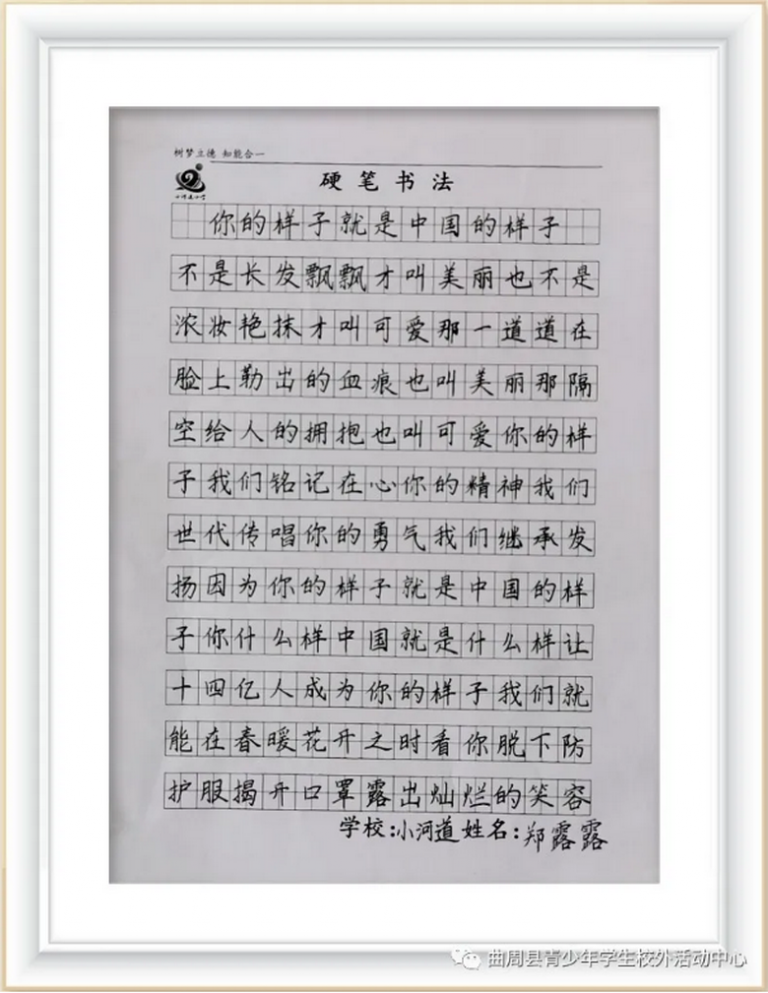 树梦立德 知能合一
硬笔书法
你的样子就是中国的样子
不是长发飘飘才叫美丽也不是
浓妆艳抹才叫可爱那一道道在
脸上勒出的血痕也叫美丽那隔
空给人的拥抱也叫可爱你的样
子我们铭记在心你的精神我们
世代传唱你的勇气我们继承发
扬因为你的样子就是中国的样
子你什么样中国就是什么样让
十四亿人成为你的样子我们就
能在春暖花开之时看你脱下防
护服揭开口罩露出灿烂的笑容
学校:小河道姓名:郑露露
曲周县青少年学生校外活动中心